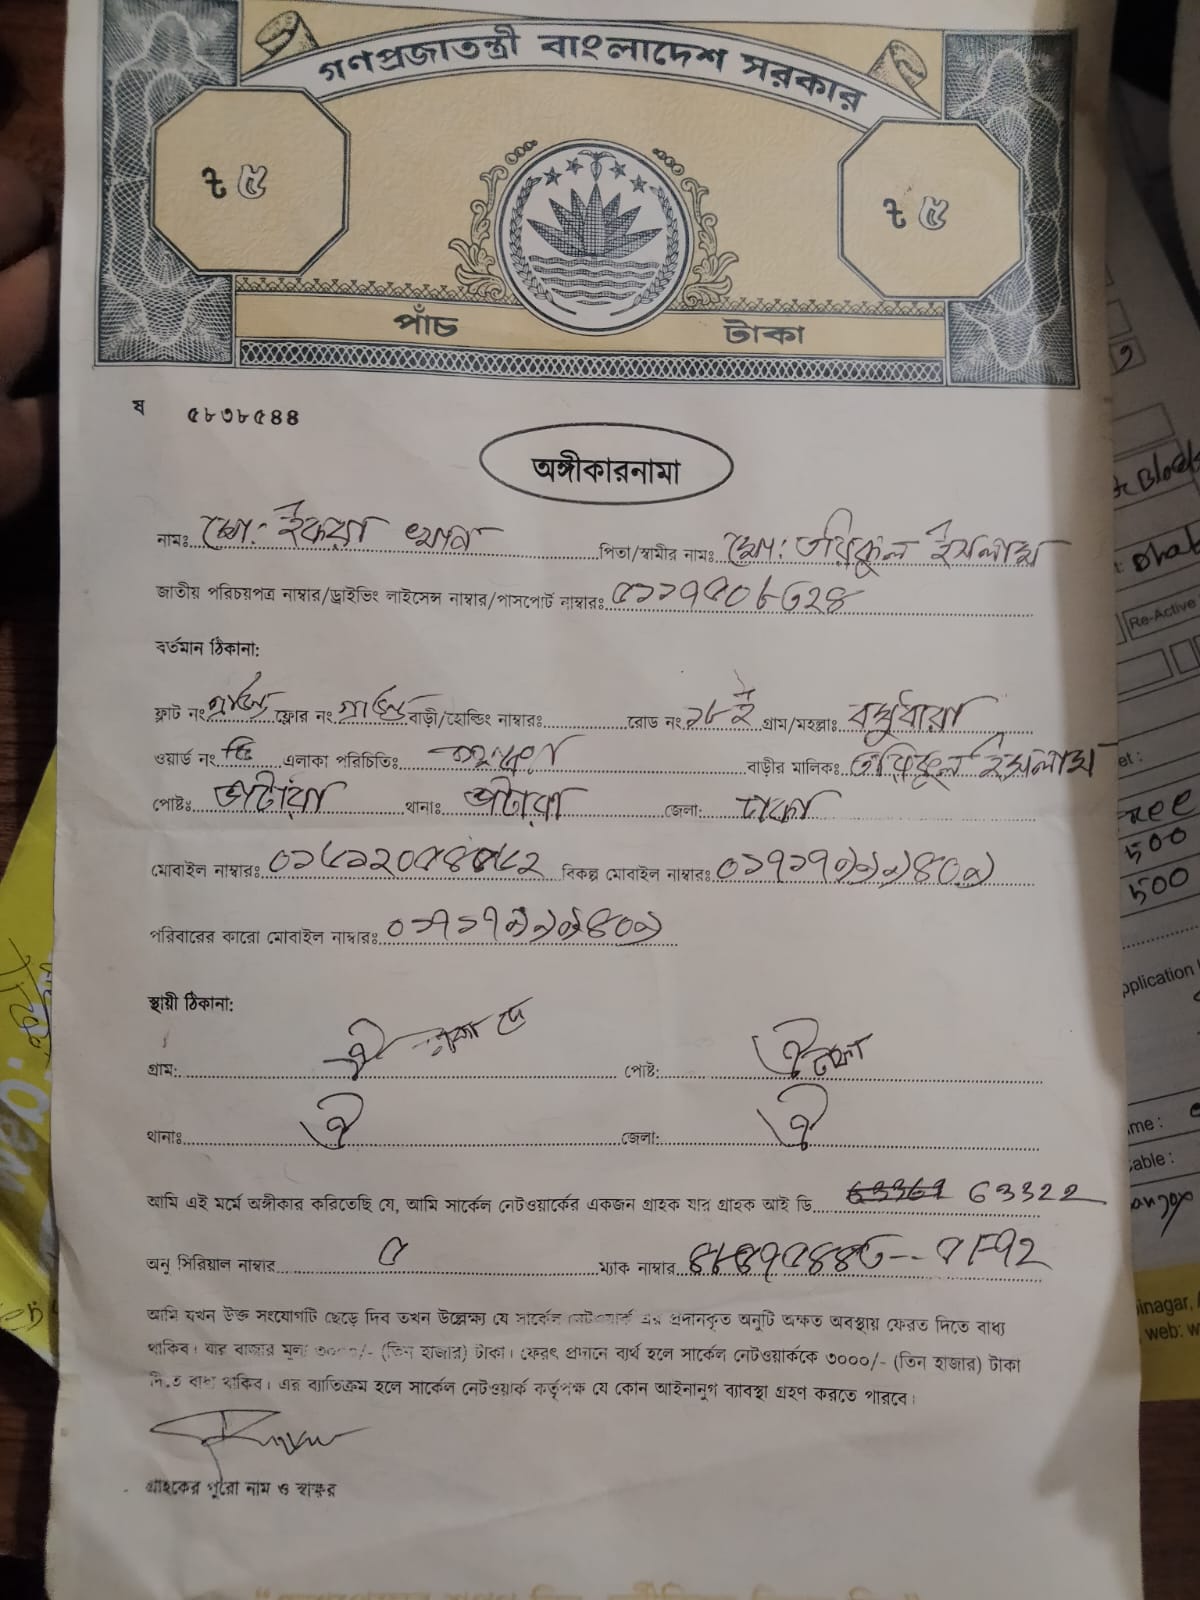 গণপ্রজাতন্ত্রী বাংলাদেশ সরকার
৳ ৫ ৳ ৫
পাঁচ টাকা
ষ ৫৮৩৮৫৪৪
অঙ্গীকারনামা
নামঃ মো: ইকরা খান পিতা/স্বামীর নামঃ মো: তরিকুল ইসলাম
জাতীয় পরিচয়পত্র নাম্বার/ড্রাইভিং লাইসেন্স নাম্বার/পাসপোর্ট নাম্বারঃ
বর্তমান ঠিকানা:
ফ্লাট নং ফ্লোর নং বাড়ী/হোল্ডিং নাম্বারঃ রোড নং ১৮ই গ্রাম/মহল্লাঃ বসুধারা
ওয়ার্ড নং এলাকা পরিচিতিঃ বাড়ীর মালিকঃ তরিকুল ইসলাম
পোষ্টঃ ভাটারা থানাঃ ভাটারা জেলা: ঢাকা
মোবাইল নাম্বারঃ বিকল্প মোবাইল নাম্বারঃ ০১৭১৭৯৯৯৪০৯
পরিবারের কারো মোবাইল নাম্বারঃ ০১৭১৭৯৯৯৪০৯
স্থায়ী ঠিকানা:
গ্রাম: ঐ পোষ্ট: ঐ ঢাকা
থানাঃ ঐ জেলা: ঐ
আমি এই মর্মে অঙ্গীকার করিতেছি যে, আমি সার্কেল নেটওয়ার্কের একজন গ্রাহক যার গ্রাহক আই ডি 63322
অনু সিরিয়াল নাম্বার ৫ ম্যাক নাম্বার
আমি যখন উক্ত সংযোগটি ছেড়ে দিব তখন উল্লেক্ষ্য যে সার্কেল নেটওয়ার্ক এর প্রদানকৃত অনুটি অক্ষত অবস্থায় ফেরত দিতে বাধ্য
থাকিব। যার বাজার মূল্য ৩০০০/- (তিন হাজার) টাকা। ফেরৎ প্রদানে ব্যর্থ হলে সার্কেল নেটওয়ার্ককে ৩০০০/- (তিন হাজার) টাকা
দিতে বাধ্য থাকিব। এর ব্যাতিক্রম হলে সার্কেল নেটওয়ার্ক কর্তৃপক্ষ যে কোন আইনানুগ ব্যাবস্থা গ্রহণ করতে পারবে।
গ্রাহকের পুরো নাম ও স্বাক্ষর
Block
Dhak
Re-Active
500
500
pplication
me :
able :
web: w